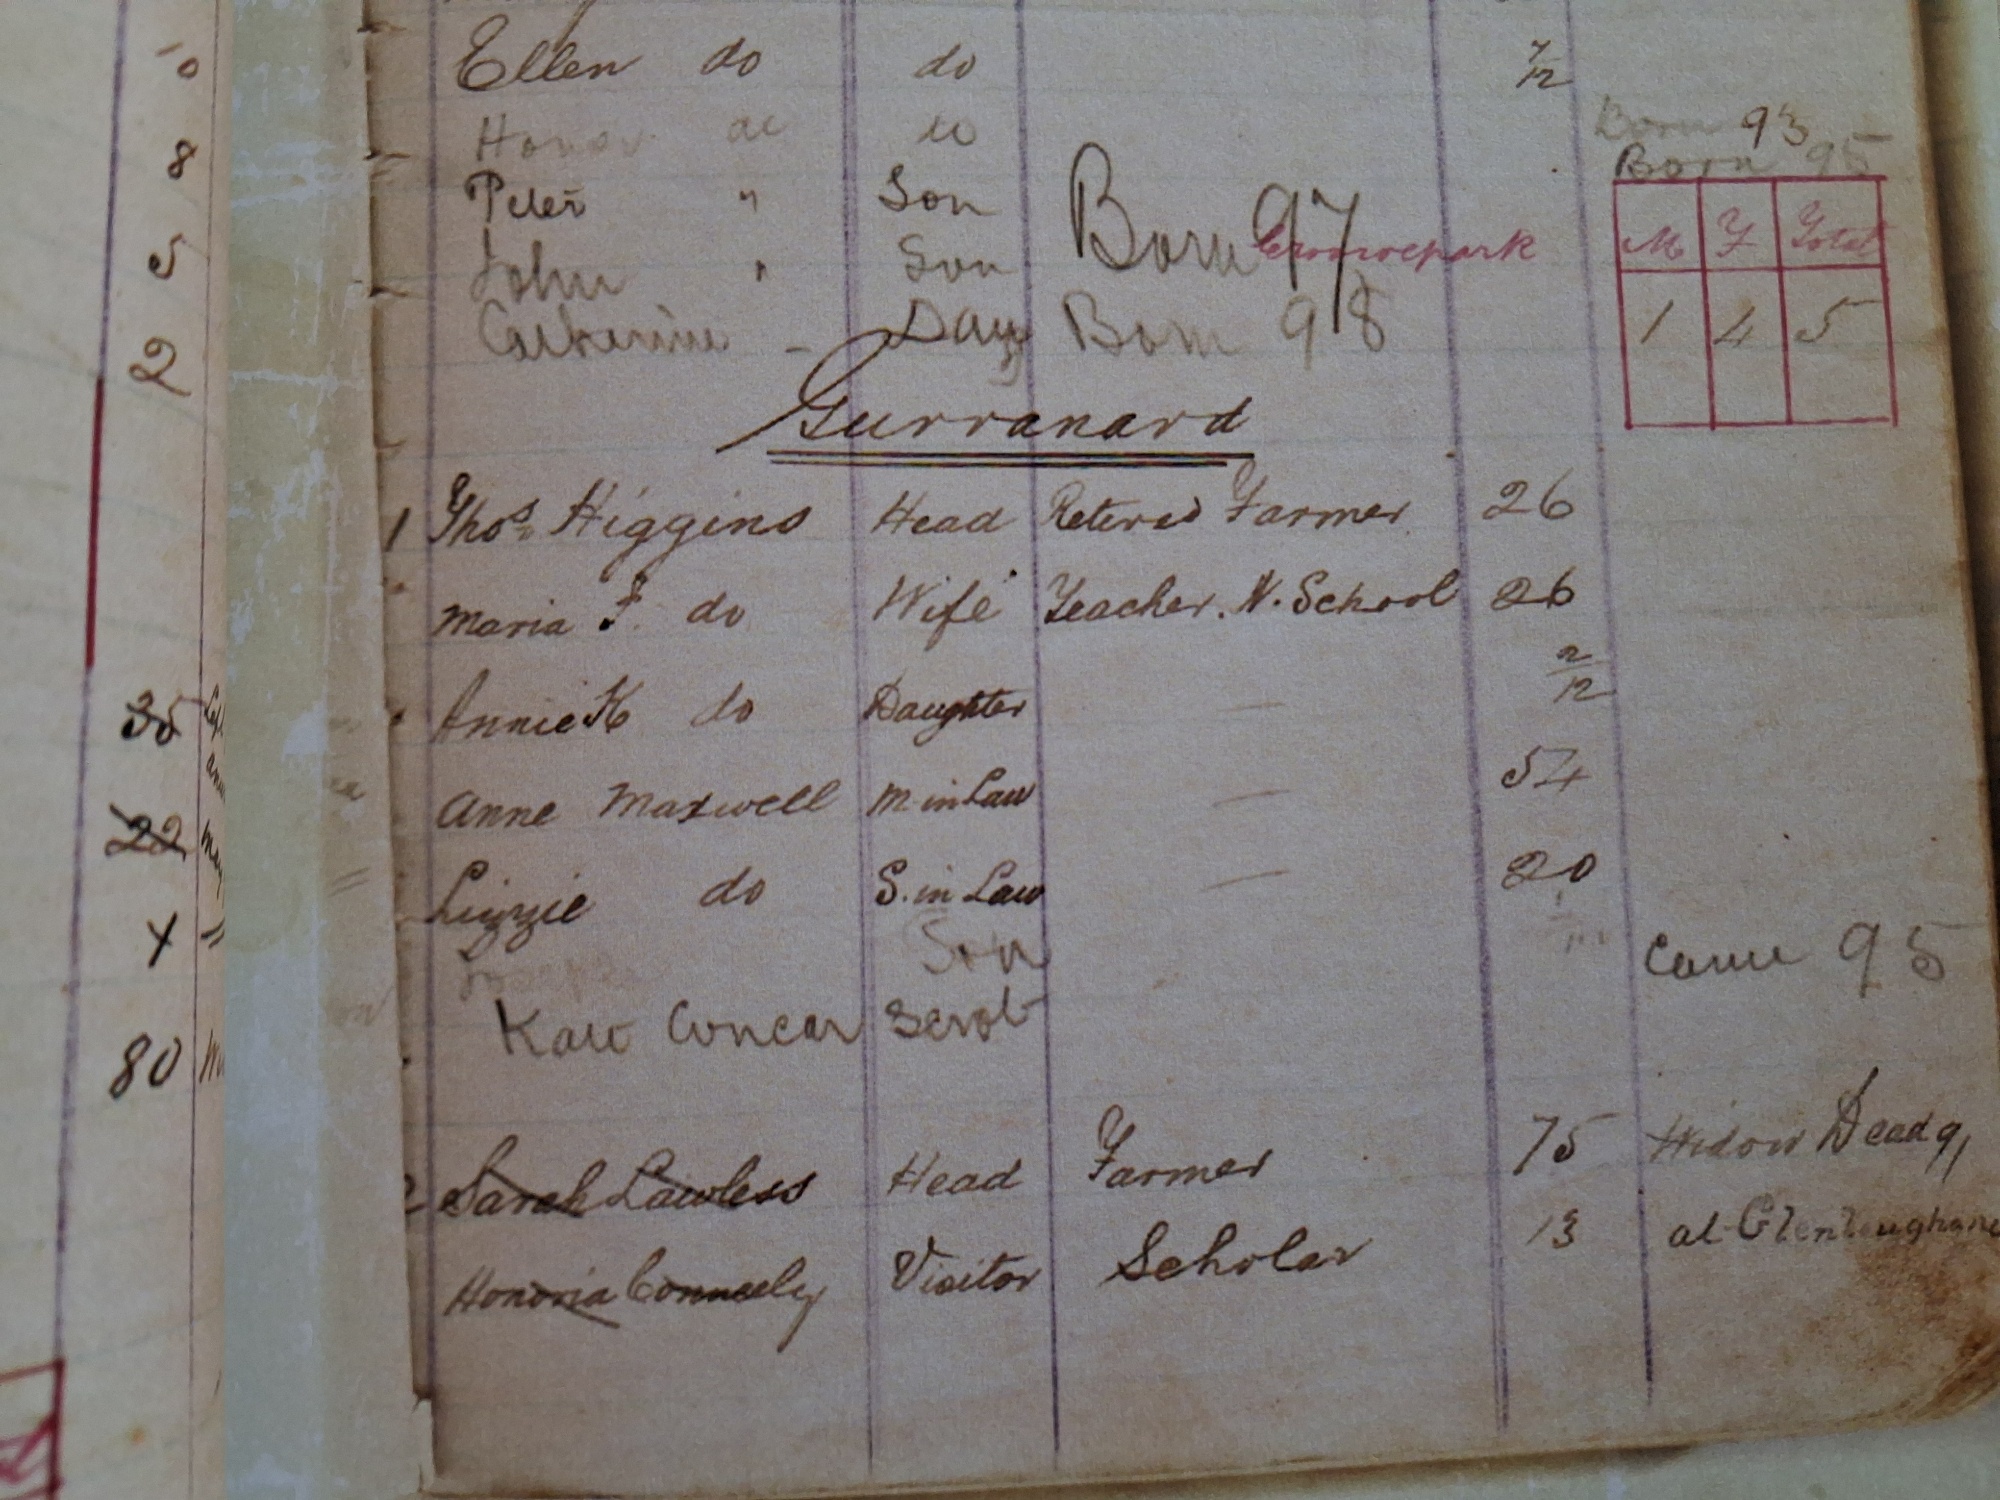 10
8
5
2
35
22
4
80
Ellen do do 7/12
Honor do do Born 93
Born 95
Peter " Son Born 97
Crowepark
M F Total
John " Son
1 4 5
Catherine - Daug Born 98
Gurranard
1 Thos. Higgins Head Retered Farmer 26
Maria F. do Wife Teacher. N. School 26
Annie K do Daughter — 2/12
Anne Maxwell M. in Law — 54
Lizzie do S. in Law — 20
Son
Came 95
Kate Concar Servt
2 Sarah Lawless Head Farmer 75 Widow Dead 91
Honoria Conneely Visitor Scholar 13 at Glenloughane